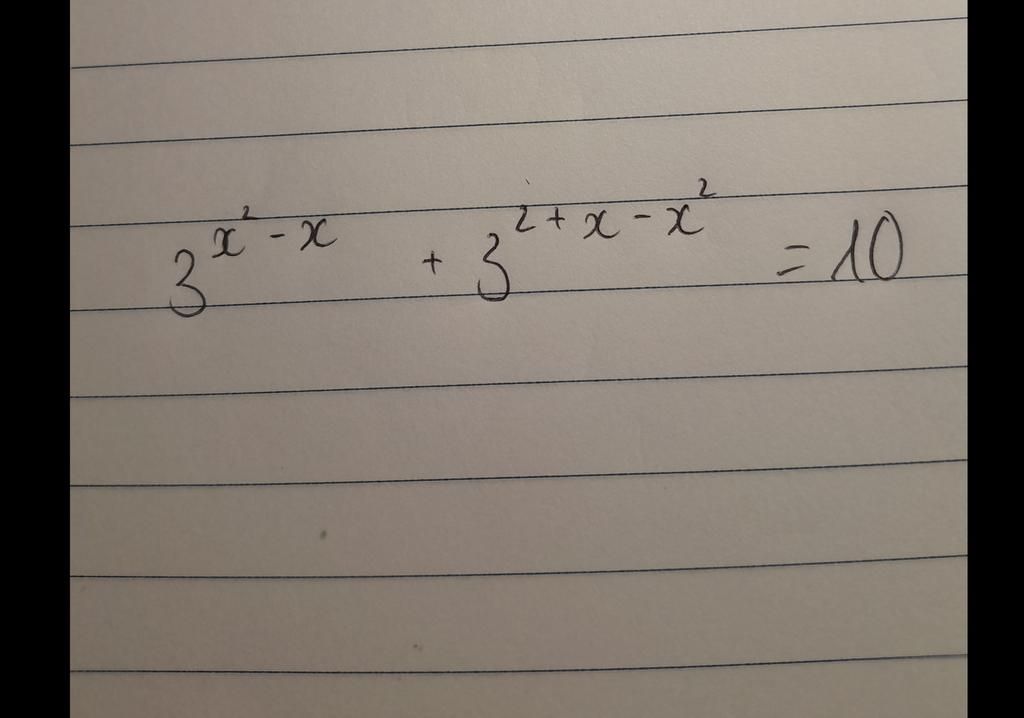 3^{x^2 - x} + 3^{2 + x - x^2} = 10